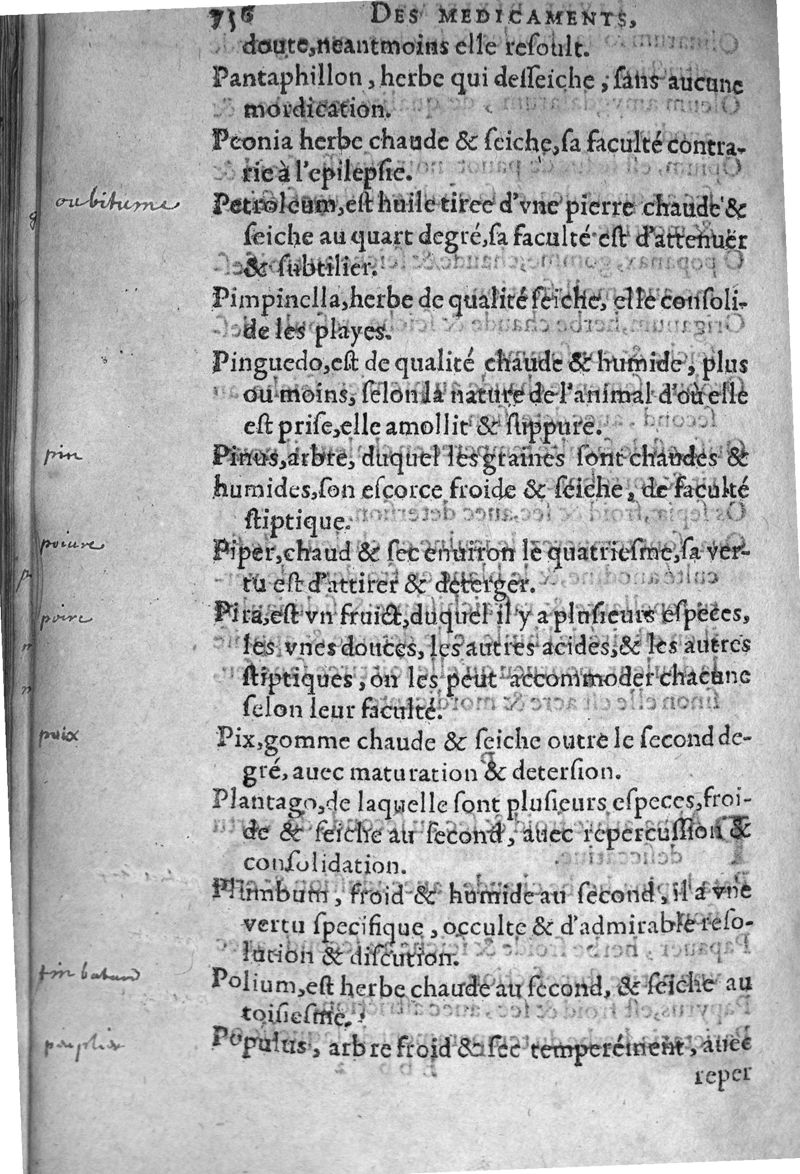 736 DES MEDICAMENTS,
doute, neantmoins elle resoult.
Pantaphillon, herbe qui desseiche, sans aucune
mordication.
Peonia herbe chaude & seiche, sa faculté contra-
rie à l'epilepsie.
ou bitume
Petroleum, est huile tiree d'vne pierre chaude &
seiche au quart degré, sa faculté est d'attenuer
& subtilier.
Pimpinella, herbe de qualité seiche, elle consoli-
de les playes.
Pinguedo, est de qualité chaude & humide, plus
ou moins, selon la nature de l'animal d'où elle
est prise, elle amollit & suppure.
pin
Pinus, arbre, duquel les graines sont chaudes &
humides, son escorce froide & seiche, de faculté
stiptique.
poiure
Piper, chaud & sec enuiron le quatriesme, sa ver-
tu est d'attirer & deterger.
poire
Pira, est vn fruict, duquel il y a plusieurs especes,
les vnes douces, les autres acides, & les autres
stiptiques, on les peut accommoder chacune
selon leur faculté.
poix
Pix, gomme chaude & seiche outre le second de-
gré, auec maturation & detersion.
Plantago, de laquelle sont plusieurs especes, froi-
de & seiche au second, auec repercussion &
consolidation.
Plumbum, froid & humide au second, il a vne
vertu specifique, occulte & d'admirable reso-
lution & discution.
Polium, est herbe chaude au second, & seiche au
toisiesme.
Populus, arbre froid & sec temperément, auec
reper